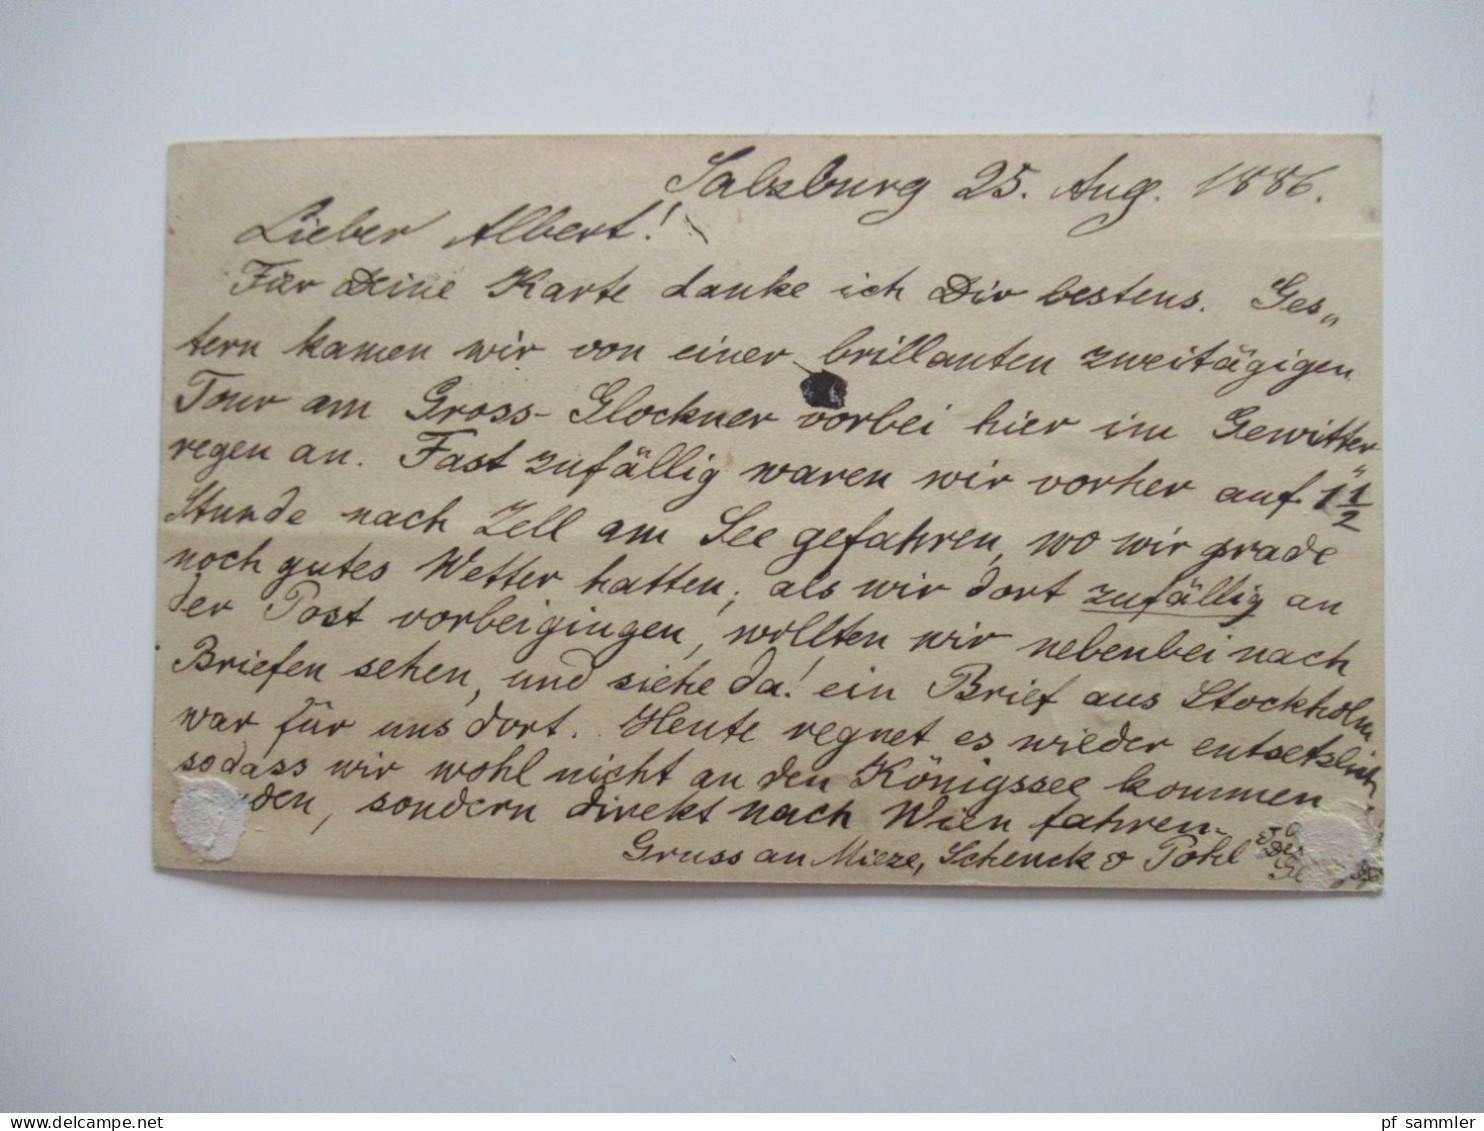 Salzburg 25. Aug. 1886.
Lieber Albert!
Für Deine Karte danke ich Dir bestens. Ges„
tern kamen wir von einer brillanten zweitägigen
Tour am Gross-Glockner vorbei hier im Gewitter„
regen an. Fast zufällig waren wir vorher auf 1 1/2
Stunde nach Zell am See gefahren, wo wir grade
noch gutes Wetter hatten; als wir dort zufällig an
der Post vorbeigingen, wollten wir nebenbei nach
Briefen sehen, und siehe da! ein Brief aus Stockholm
war für uns dort. Heute regnet es wieder entsetzlich
sodass wir wohl nicht an den Königssee kommen
sondern direkt nach Wien fahren.
Gruss an Mieze, Schenck & Pohl
pf_sammler
delcampe.net